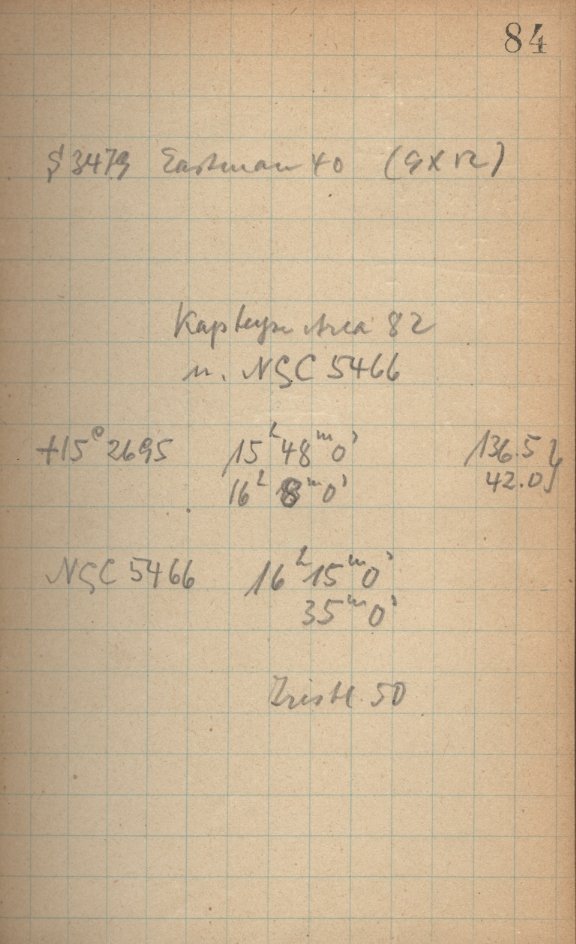 84
S 3479 Eastman 40 (9 X 12)
Kapteyn Area 82
u. NGC 5466
+15° 2695 15ʰ 48ᵐ 0ˢ 136.5
16ʰ 8ᵐ 0ˢ 42.0
NGC 5466 16ʰ 15ᵐ 0ˢ
35ᵐ 0ˢ
50